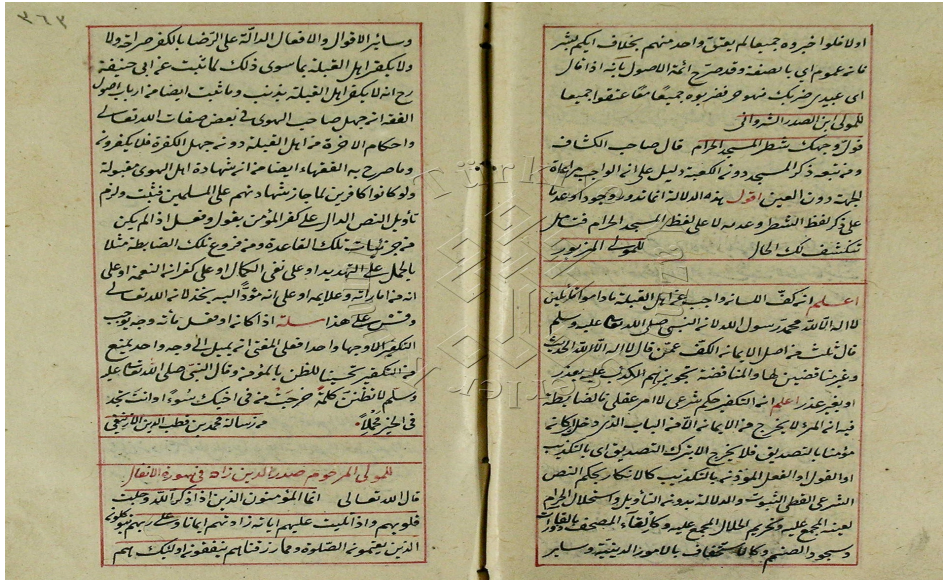 اولا فلو اخبروه جميعا لم يعتق واحد منهم بخلاف ايكم بشر
فانه عموم اى بالصفة وقد صرح ائمة الاصول بانه اذا قال
اى عبيدى ضربك فهو حر فضربوه جميعا معا عتقوا جميعا
للمولى ابن الصدر الشروانى
فول وجهك شطر المسجد الحرام قال صاحب الكشاف
ومن تبعه ذكر المسجد دون الكعبة دليل على ان الواجب مراعاة
الجهت دون العين اقول هذه الدلالة انما تدور وجودا وعدما
على ذكر لفظ الشطر وعدمه لا على لفظ المسجد الحرام فتأمل
تنكشف لك الحال للمولى المزبور
اعلم ان كف اللسان واجب عن اهل القبلة ما داموا قائلين
لا اله الا الله محمد رسول الله لان النبى صلى الله تعالى عليه وسلم
قال ثلث من اصل الايمان الكف عمن قال لا اله الا الله الحديث
وغير مناقضين لها والمناقضة تجويزهم الكذب عليه بعذر
او بغير عذر اعلم ان التكفير حكم شرعى لا امر عقلى فالضابطة
فيه ان المرء لا يخرج من الايمان الا من الباب الذى دخل كانه
مؤمنا بالتصديق فلا يخرج الا بترك التصديق اى بالتكذيب
او القول او الفعل المؤذن بالتكذيب كالانكار بحكم النص
الشرعى القطعى الثبوت والدلالة بدون التأويل واستحلال الحرام
لعينه المجمع عليه وتحريم الحلال المجمع عليه وكالقاء المصحف بالقاذورات
وسجود الصنم وكالاستخفاف بالامور الدينية وساير
٣٦٣
وساير الاقوال والافعال الدالة على الرضا بالكفر صراحة ولا
ولا يكفر اهل القبلة بما سوى ذلك لما ثبت عن ابى حنيفة
رح انه لا يكفر اهل القبلة بذنب وما ثبت ايضا من ارباب اصول
الفقه ان جهل صاحب الهوى فى بعض صفات الله تعالى
واحكام الاخرة من اهل القبلة دون جهل الكفرة فلا يكفرون
وما صرح به الفقهاء ايضا من ان شهادة اهل الهوى مقبولة
ولو كانوا كافرين لما جاز شهادتهم على المسلمين فثبت ولزم
تأويل النص الدال على كفر المؤمن بقول وفعل اذا لم يكن
من جزئيات تلك القاعدة ومن فروع تلك الضابطة مثلا
يا يحمل على التهديد او على نفى الكمال او على كفران النعمة او على
انه من اماراته وعلايمه او على انه مؤد اليه بخذلان الله تعالى
وقس على هذا مسئلة اذا كان او فعل مأته وجه يوجب
التكفير الا وجها واحدا فعلى المفتى ان يميل الى وجه واحد يمنع
من التكفير تحسينا للظن بالمؤمن وقال النبى صلى الله تعالى عليه
وسلم لا تظنن كلمة خرجت من فى اخيك سوء او انت تجد
فى الخير محملا من رسالة محمد بن قطب الدين الازنيقى
للمولى المرحوم صدر الدين زاده فى سورة الانفال
قال الله تعالى انما المؤمنون الذين اذا ذكر الله وجلت
قلوبهم واذا تليت عليهم اياته زادتهم ايمانا وعلى ربهم يتوكلون
الذين يقيمون الصلوة ومما رزقناهم ينفقون اولئك هم